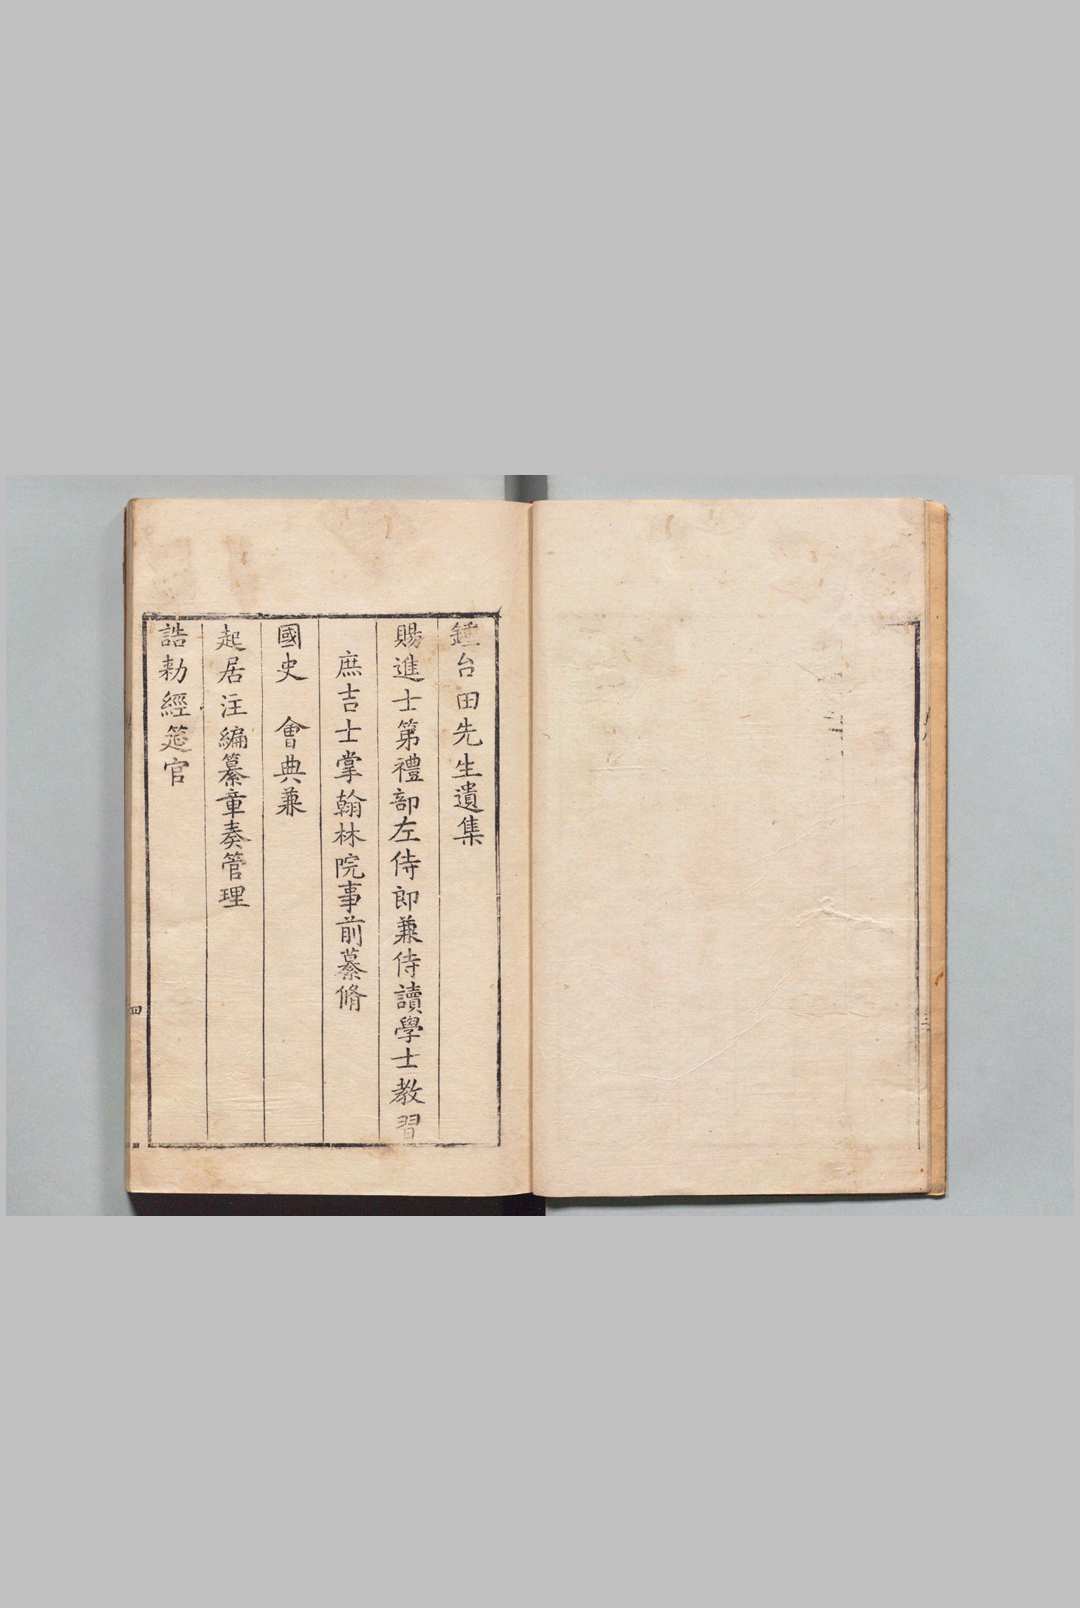 鍾台田先生遺集
賜進士第禮部左侍郎兼侍讀學士教習
庶吉士掌翰林院事前纂脩
國史　會典兼
起居注編纂章奏管理
誥勅經筵官
四